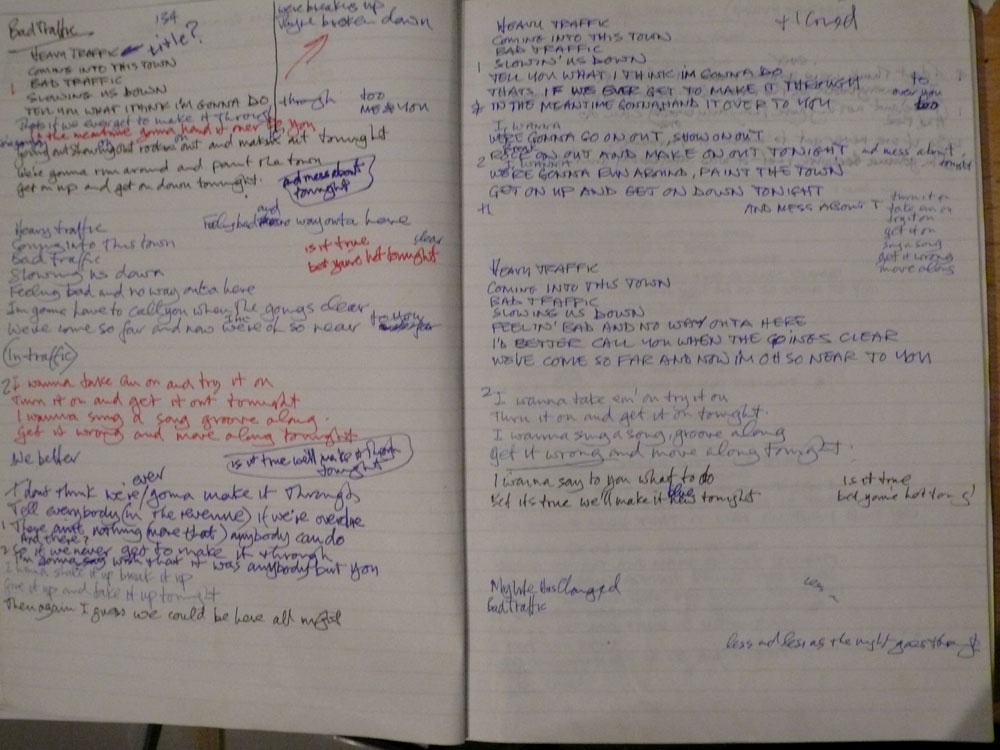 Bad Traffic
134
title?
HEAVY TRAFFIC
COMING INTO THIS TOWN
1 BAD TRAFFIC
SLOWING US DOWN
TELL YOU WHAT I THINK I'M GONNA DO
Thats if we ever get to make it through
In the meantime gonna hand it over to you
going out showing out rockin out and makin out tonight
We're gonna run around and paint the town
get on up and get on down tonight.
were breaking up
broken down
through too
me you
and mess about tonight
Heavy traffic
Coming into this town
Bad Traffic
Slowing us down
Feeling bad and no way outa here
Im gonna have to call you when the goings clear
We've come so far and now Im oh so near to you
Feeling bad and no way outa here
is it true clear
bet you're hot tonight
(In traffic)
2 I wanna take em on and try it on
Turn it on and get it out tonight
I wanna sing a song groove along.
Get it wrong and move along tonight
We better
is it true we'll make it tonight
ever
I dont think we're gonna make it through
Tell everybody (in the revenue) if we're overdue
1 There aint nothing (more that) anybody can do
And there?
2 So if we never get to make it through
I'm gonna say wish that it was anybody but you
I wanna shake it up break it up
Give it up and take it up tonight
Then again I guess we could be here all night
+1 Crusd
HEAVY TRAFFIC
COMING INTO THIS TOWN
BAD TRAFFIC
1 SLOWIN' US DOWN
TELL YOU WHAT I THINK I'M GONNA DO
THATS IF WE EVER GET TO MAKE IT THROUGH to
over you
IN THE MEANTIME GONNA HAND IT OVER TO YOU too
I WANNA
WE'RE GONNA GO ON OUT, SHOW ON OUT
ROCK ON OUT AND MAKE ON OUT TONIGHT and mess about tonight
2 I WANNA
WE'RE GONNA RUN AROUND, PAINT THE TOWN
GET ON UP AND GET ON DOWN TONIGHT
+1 AND MESS ABOUT T
turn it on
take em on
try it on
get it on
sing a song
get it wrong
move along
HEAVY TRAFFIC
COMING INTO THIS TOWN
BAD TRAFFIC
SLOWING US DOWN
FEELIN' BAD AND NO WAY OUTA HERE
I'D BETTER CALL YOU WHEN THE GOINGS CLEAR
WE'VE COME SO FAR AND NOW I'M OH SO NEAR TO YOU
2 I wanna take em' on try it on
Turn it on and get it on tonight.
I wanna sing a song, groove along
get it wrong and move along tonight.
I wanna say to you what to do
bet its true we'll make it tonight
blue
Is it true
bet you're hot tonight
My life Has Changed
Bad traffic
less
less and less as the night goes through